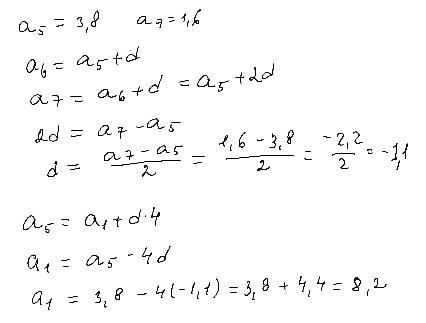 a₅ = 3,8    a₇ = 1,6
a₆ = a₅ + d
a₇ = a₆ + d = a₅ + 2d
2d = a₇ - a₅
d = (a₇ - a₅)/2 = (1,6 - 3,8)/2 = (-2,2)/2 = -1,1
a₅ = a₁ + d·4
a₁ = a₅ - 4d
a₁ = 3,8 - 4(-1,1) = 3,8 + 4,4 = 8,2